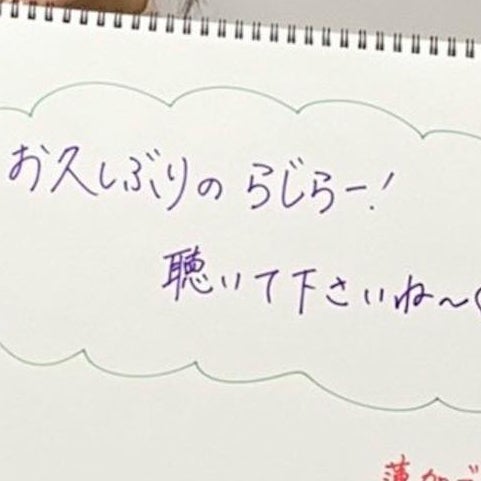 お久しぶりのらじらー!
聴いて下さいね〜
蓮加